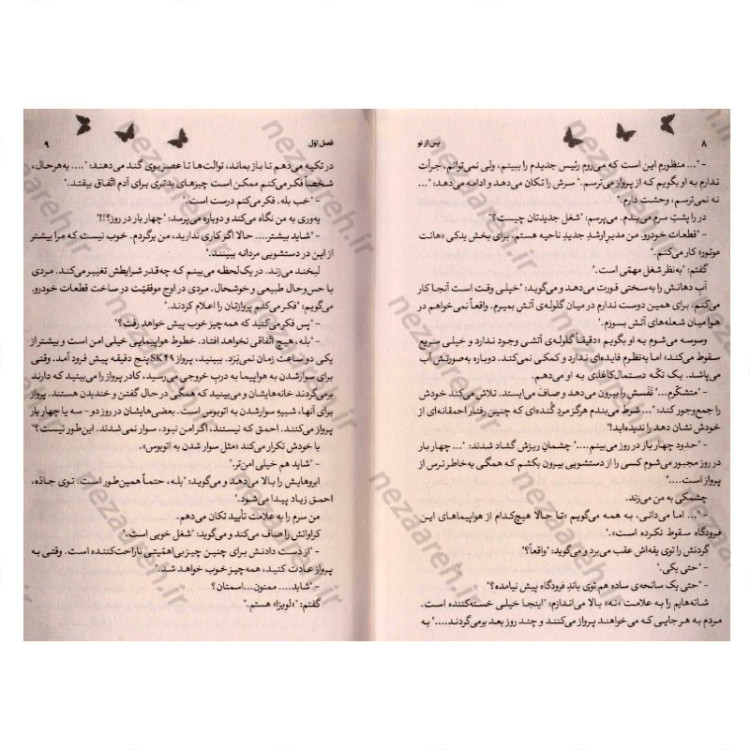 ۸
پس از تو
– "... منظورم این است که می‌روم رئیس جدیدم را ببینم، ولی نمی‌توانم، جرأت
ندارم به او بگویم که از پرواز می‌ترسم." سرش را تکان می‌دهد و ادامه می‌دهد: "...
نه نمی‌ترسم، وحشت دارم."
در را پشتِ سرم می‌بندم. می‌پرسم: "شغل جدیدتان چیست؟"
– "قطعات خودرو. من مدیرِ ارشدِ جدیدِ ناحیه هستم، برای بخش یدکی «هانت
موتور» کار می‌کنم."
گفتم: "به‌نظر شغل مهمّی است."
آب دهانش را به‌سختی قورت می‌دهد و می‌گوید: "خیلی وقت است آنجا کار
می‌کنم، برای همین دوست ندارم در میان گلوله‌ی آتش بمیرم. واقعاً نمی‌خواهم در
هوا میان شعله‌های آتش بسوزم."
وسوسه می‌شوم به او بگویم «دقیقاً گلوله‌ی آتشی وجود ندارد و خیلی سریع
سقوط می‌کند»؛ اما به‌نظرم فایده‌ای ندارد و کمکی نمی‌کند. دوباره به‌صورتش آب
می‌پاشد. یک تکّه دستمال‌کاغذی به او می‌دهم.
– "متشکّرم..." نَفَسش را بیرون می‌دهد و صاف می‌ایستد. تلاش می‌کند خودش
را جمع‌وجور کند: "... شرط می‌بندم هرگز مردِ گُنده‌ای که چنین رفتار احمقانه‌ای از
خودش نشان دهد را ندیده‌اید!"
– "حدود چهار بار در روز می‌بینم...." چشمانِ ریزش گشاد شدند: "... چهار بار
در روز مجبور می‌شوم کسی را از دستشویی بیرون بکشم که همگی به‌خاطر ترس از
پرواز است...."
چشمکی به من می‌زند.
– "... اما می‌دانی، به همه می‌گویم «تا حالا هیچ‌کدام از هواپیماهای این
فرودگاه سقوط نکرده است»."
گردنش را توی یقه‌اش عقب می‌برد و می‌گوید: "واقعاً؟"
– "حتی یکی."
– "حتی یک سانحه‌ی ساده هم توی باندِ فرودگاه پیش نیامده؟"
شانه‌هایم را به علامت «نه» بالا می‌اندازم: "اینجا خیلی خسته‌کننده است.
مردم به هر جایی که می‌خواهند پرواز می‌کنند و چند روز بعد برمی‌گردند....." به
فصل اوّل
۹
در تکیه می‌دهم تا باز بماند، توالت‌ها تا عصر بوی گند می‌دهند: ".... به‌هرحال،
شخصاً فکر می‌کنم ممکن است چیزهای بدتری برای آدم اتفاق بیفتد."
– "خب بله. فکر می‌کنم درست است."
یه‌وری به من نگاه می‌کند و دوباره می‌پرسد: "چهار بار در روز؟!؟"
– "شاید بیشتر.... حالا اگر کاری ندارید، من برگردم. خوب نیست که مرا بیشتر
از این در دستشویی مردانه ببینند."
لبخند می‌زند. در یک لحظه می‌بینم که چه‌قدر شرایطش تغییر می‌کند. مردی
با حس‌وحال طبیعی و خوشحال. مردی در اوج موفقیّت در ساخت قطعات خودرو.
می‌گویم: "فکر می‌کنم پروازتان را اعلام کردند."
– "پس فکر می‌کنید که همه چیز خوب پیش خواهد رفت؟"
– "بله، هیچ اتّفاقی نخواهد افتاد. خطوط هواپیمایی خیلی امن است و بیشتر از
یکی دو ساعت زمان نمی‌بَرَد. ببینید، پرواز SK۴۹ پنج دقیقه پیش فرود آمد. وقتی
برای سوارشدن به هواپیما به دربِ خروجی می‌رسید، کادر پرواز را می‌بینید که دارند
برمی‌گردند خانه‌هایشان و می‌بینید که همگی در حال گفتن و خندیدن هستند. پرواز
برای آنها، شبیهِ سوارشدن به اتوبوس است. بعضی‌هایشان در روز دو - سه یا چهار بار
پرواز می‌کنند. احمق که نیستند، اگر امن نبود، سوار نمی‌شدند. این‌طور نیست؟"
با خودش تکرار می‌کند «مثل سوار شدن به اتوبوس».
– "شاید هم خیلی امن‌تر."
ابروهایش را بالا می‌دهد و می‌گوید: "بله، حتماً همین‌طور است. توی جادّه،
احمق زیاد پیدا می‌شود."
من سرم را به علامت تأیید تکان می‌دهم.
کراواتش را صاف می‌کند و می‌گوید: "شغل خوبی است."
– "از دست دادنش برای چنین چیز بی‌اهمّیتی ناراحت‌کننده است. وقتی به
پرواز عادت کنید، همه‌چیز خوب خواهد شد."
– "شاید..... ممنون....اسمتان؟"
گفتم: "«لوییزا» هستم."
nezaareh.ir
nezaareh.ir
nezaareh.ir
nezaareh.ir
nezaareh.ir
nezaareh.ir